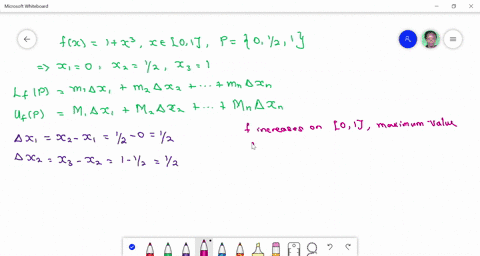 Microsoft Whiteboard
f(x) = 1+x³, x∈[0,1], P={0,1/2,1}
⇒ x₁=0, x₂=1/2, x₃=1
L_f(P) = m₁Δx₁ + m₂Δx₂ + ··· + mₙΔxₙ
U_f(P) = M₁Δx₁ + M₂Δx₂ + ··· + MₙΔxₙ
Δx₁ = x₂-x₁ = 1/2-0 = 1/2
Δx₂ = x₃-x₂ = 1-1/2 = 1/2
f increases on [0,1], maximum value